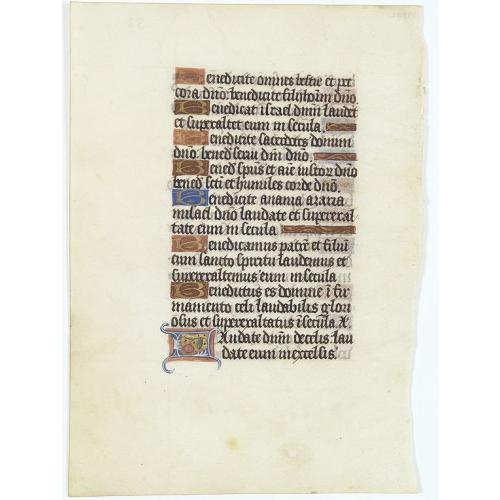 Benedicite omnes bestie et pe
cora dño: benedicite filij hoīm dño
Benedicat israel dñm laudet
et superexaltet eum in secula.
Benedicite sacerdotes domini
dño. bened serui dñi dño.
Bened spūs et aīe iustor dño
bened scī et humiles corde dño.
Benedicite anania azaria
misael dño laudate et superexal
tate eum in secula
Benedicamus patrē et filiū
cum sancto spiritu laudemus et
superexaltemus eum in secula
Benedictus es domine ī fir
mamento celi laudabilis et glori
osus et superexaltatus ī secula
Laudate dñm de celis: lau
date eum in excelsis.